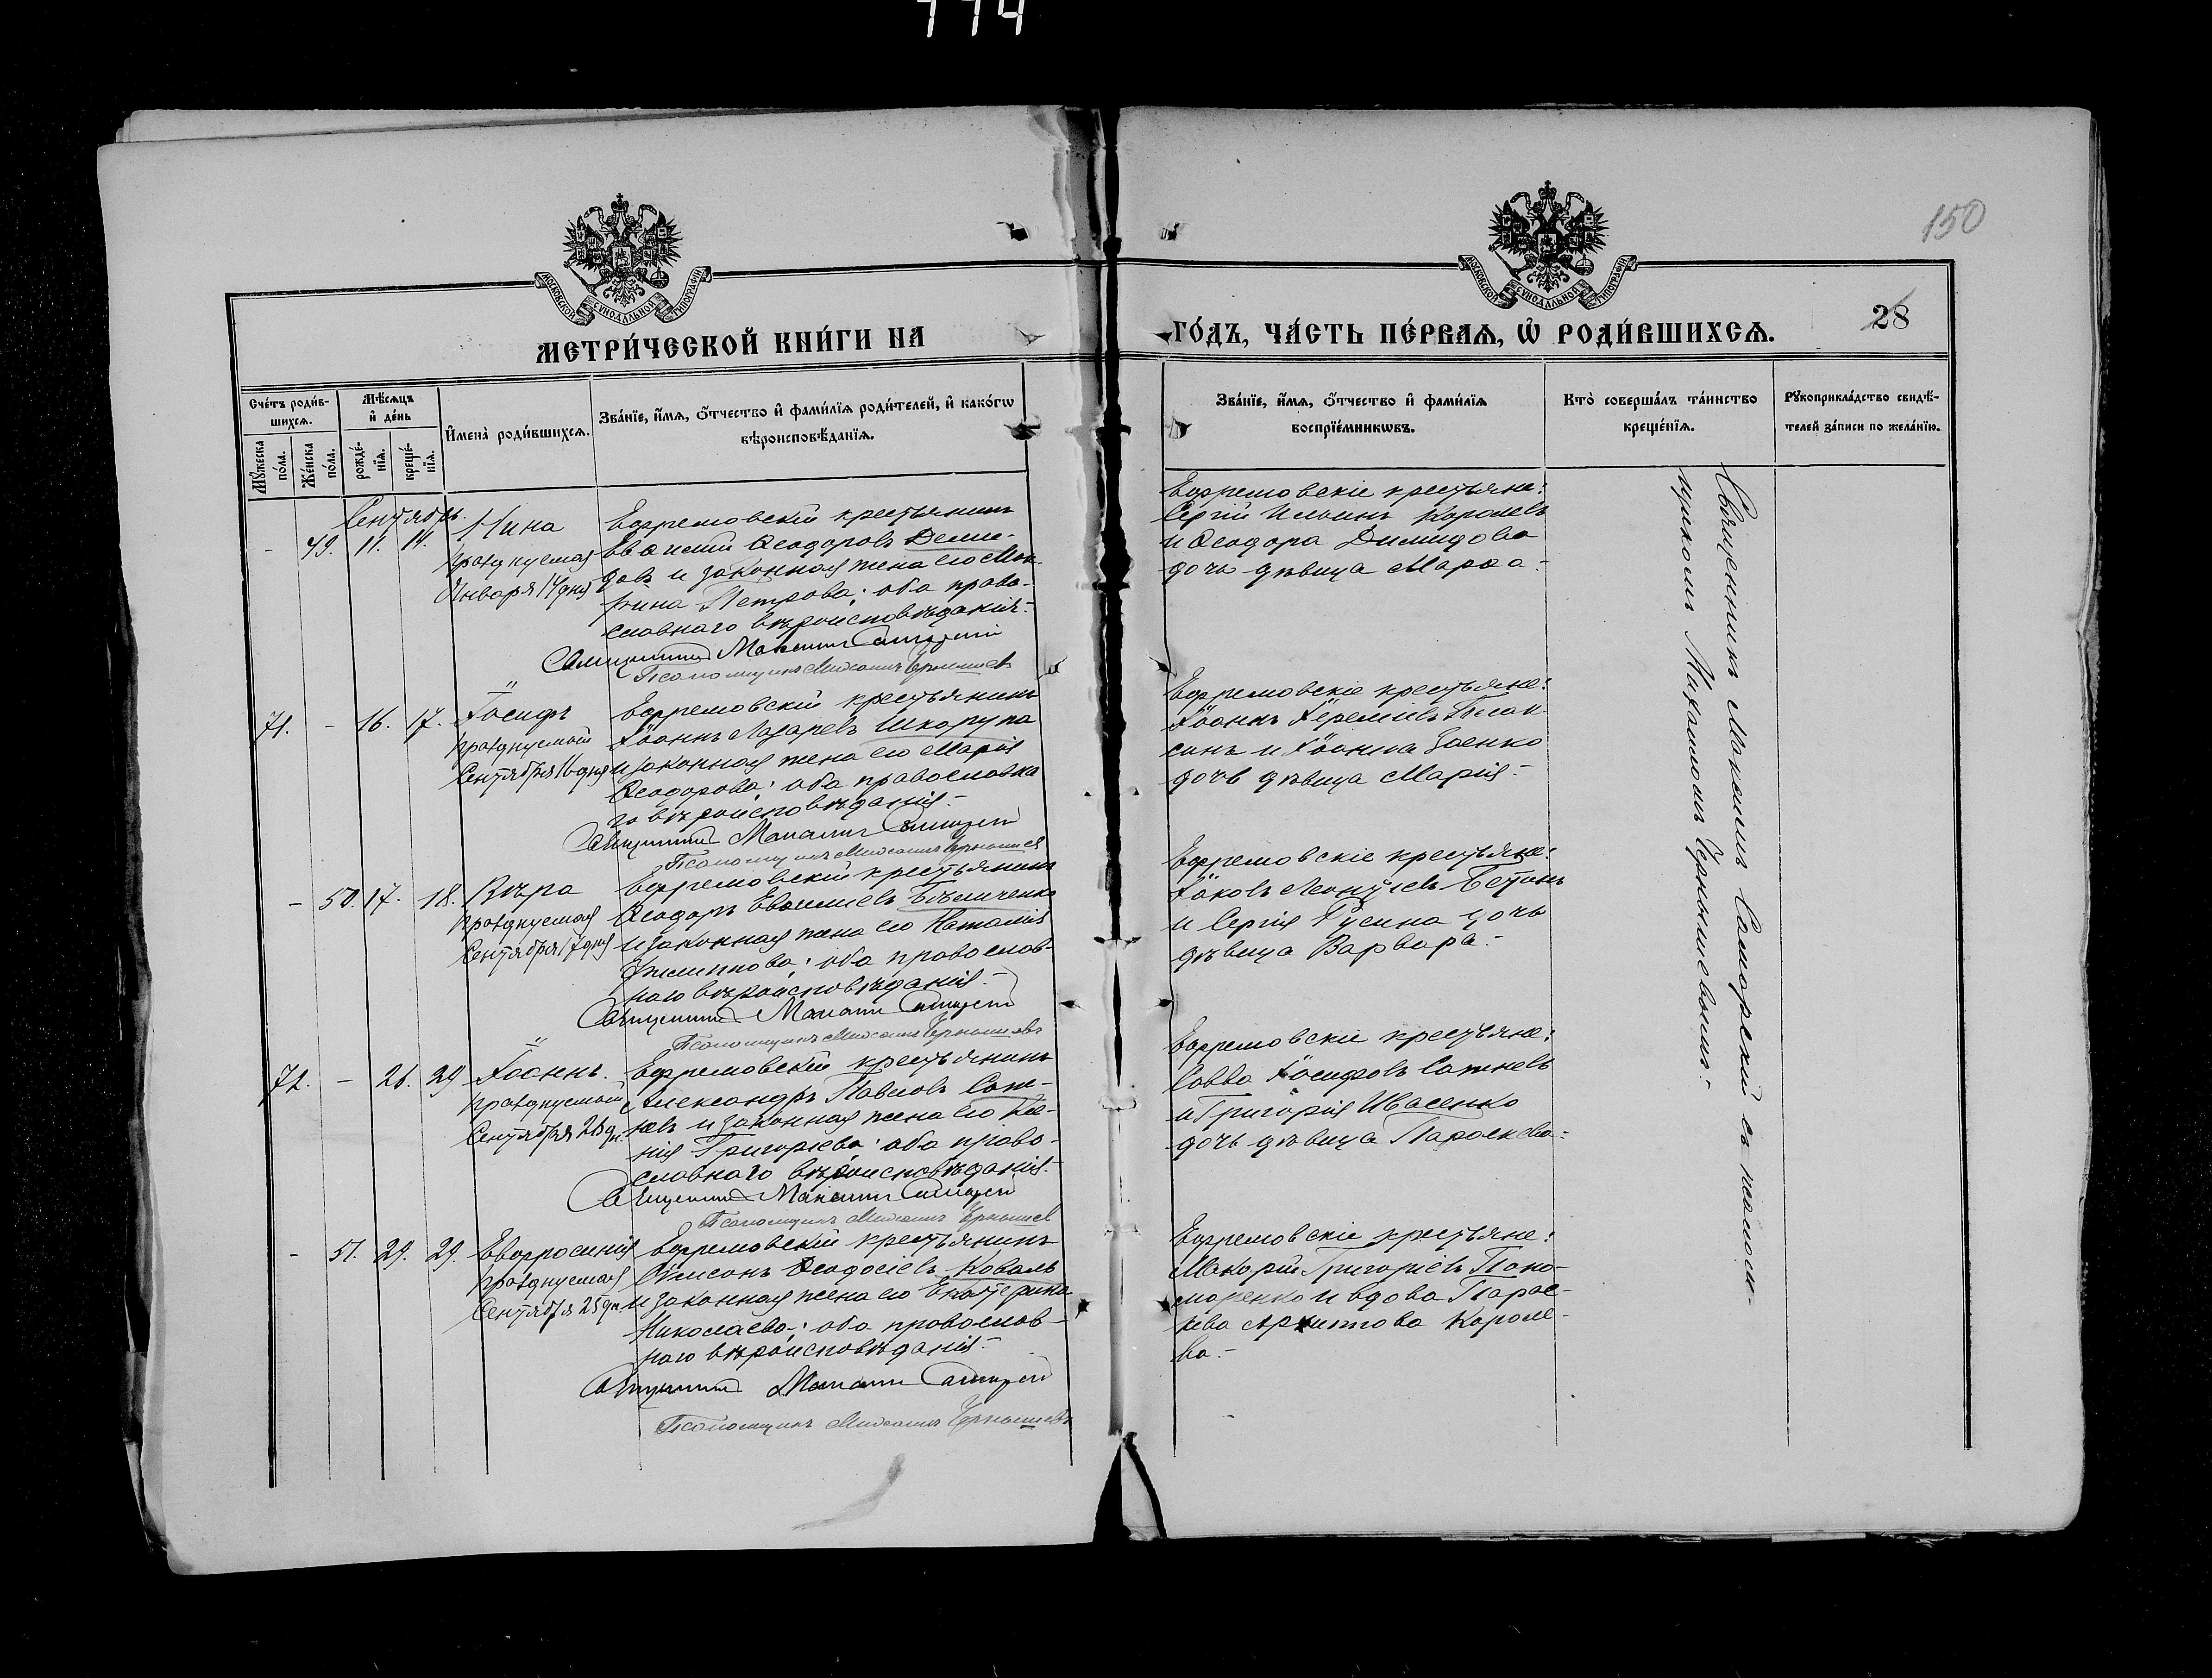 150
МОСКОВСКОЙ СУНОДАЛЬНОЙ ТИПОГРАФІИ
МОСКОВСКОЙ СУНОДАЛЬНОЙ ТИПОГРАФІИ
28
МЕТРИ́ЧЕСКОЙ КНИ́ГИ НА
ГО́ДЪ, ЧА́СТЬ ПЕ́РВАЯ, Ѡ РОДИ́ВШИХСЯ.
Сче́тъ роди́в-
шихся.
Мѣ́сяцъ
и де́нь
Мꙋ́жеска
по́ла.
Же́нска
по́ла.
рожде́-
нїя.
креще́-
нїя.
Имена̀ роди́вшихся.
Зва́нїе, и́мя, о́тчество и фами́лїя роди́телей, и како́гѡ
вѣроисповѣ́данїя.
Зва́нїе, и́мя, о́тчество и фами́лїя
воспрїе́мникѡвъ.
Кто̀ соверша́лъ та́инство
креще́нїя.
Рꙋкоприкла́дство свидѣ́-
телей за́писи по жела́нїю.
Сентябрь.
- 49. 11. 14. Нина
празднуемая
Января 14 дня
Ефремовскій крестьянинъ
Ѳеодоровъ Деми-
довъ и законная жена его
Петрова; оба право-
славнаго вѣроисповѣданія.-
Священникъ Максимъ Самарскій
Псаломщикъ Михаилъ Чернышевъ
Ефремовскіе крестьяне:
Сергій Ильинъ Королевъ
и Ѳеодора Димидова
дочь дѣвица Марѳа.-
71. - 16. 17. Іосифъ
празднуемый
Сентября 16 дня
Ефремовскій крестьянинъ
Іоаннъ Лазаревъ Шкарупа
и законная жена его Марія
Ѳеодорова; оба православна
го вѣроисповѣданія.-
Священникъ Максимъ Самарскій
Псаломщикъ Михаилъ Чернышевъ
Ефремовскіе крестьяне:
Іоаннъ Іереміевъ
и Іоанна Заенко
дочь дѣвица Марія.-
- 50. 17. 18. Вѣра
празднуемая
Сентября 17 дня
Ефремовскій крестьянинъ
Ѳеодоръ Бѣличенко
и законная жена его Наталія
Филиппова; оба православ-
наго вѣроисповѣданія.-
Священникъ Максимъ Самарскій
Псаломщикъ Михаилъ Чернышевъ
Ефремовскіе крестьяне:
Іаковъ Леонтіевъ
и Сергія Русина дочь
дѣвица Варвара.-
72. - 26. 29. Іоаннъ.
празднуемый
Сентября 26 дн.
Ефремовскій крестьянинъ
Александръ Павловъ
и законная жена его
нія Григоріева; оба право-
славнаго вѣроисповѣданія.-
Священникъ Максимъ Самарскій
Псаломщикъ Михаилъ Чернышевъ
Ефремовскіе крестьяне:
Савва Іосифовъ
и Григорія Ивасенко
дочь дѣвица Параскева.-
- 51. 29. 29. Евфросинія
празднуемая
Сентября 25 дн.
Ефремовскій крестьянинъ
Сѵмеонъ Ѳеодосіевъ Коваль
и законная жена его Екатерина
Николаева; оба православ-
наго вѣроисповѣданія.-
Священникъ Максимъ Самарскій
Псаломщикъ Михаилъ Чернышевъ
Ефремовскіе крестьяне:
Макарій Григоріевъ Поно-
маренко и вдова Парас-
кева Архиппова Короле-
ва.-
Священникъ Максимъ Самарскій съ псалом-
щикомъ Михаиломъ Чернышевымъ.-